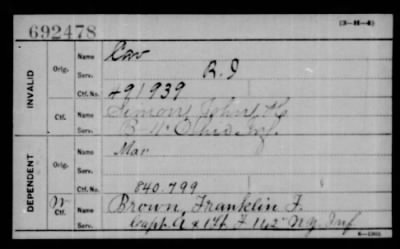 692478
(3-H-4)
INVALID
Orig.
Name
Serv.
R. I
Ctf. No.
491939
Ctf.
Name
Simons, John K
Serv.
B-4" Ohio Inf.
DEPENDENT
Orig.
Name
Mar
Serv.
Ctf. No.
840.799
Ctf.
Name
Brown, Franklin F.
Serv.
Capt. A & 1 Lt F 142" NY Inf